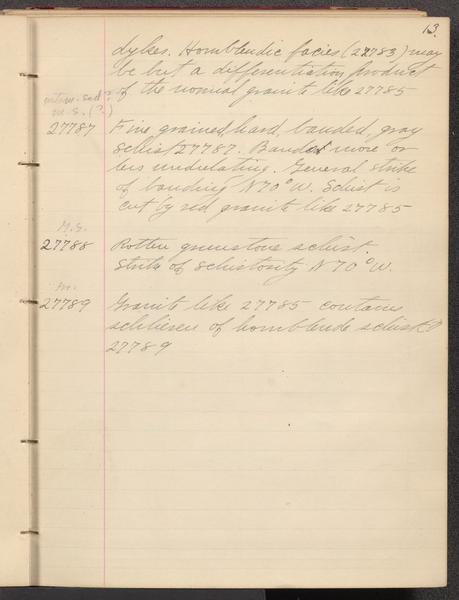 13.
dykes. Hornblendic facies (27783) may
be but a differentiation product
of the normal granite like 27785
M.S. (?)
27787 Fine grained, hard, banded, gray
schist 27787. Banded more or
less undulating. General strike
of banding N70°W. Schist is
cut by red granite like 27785
M.S.
27788 Rotten greenstone schist.
Strike of schistosity N70°W.
27789 Granite like 27785 contains
schlieren of hornblende schist
27789